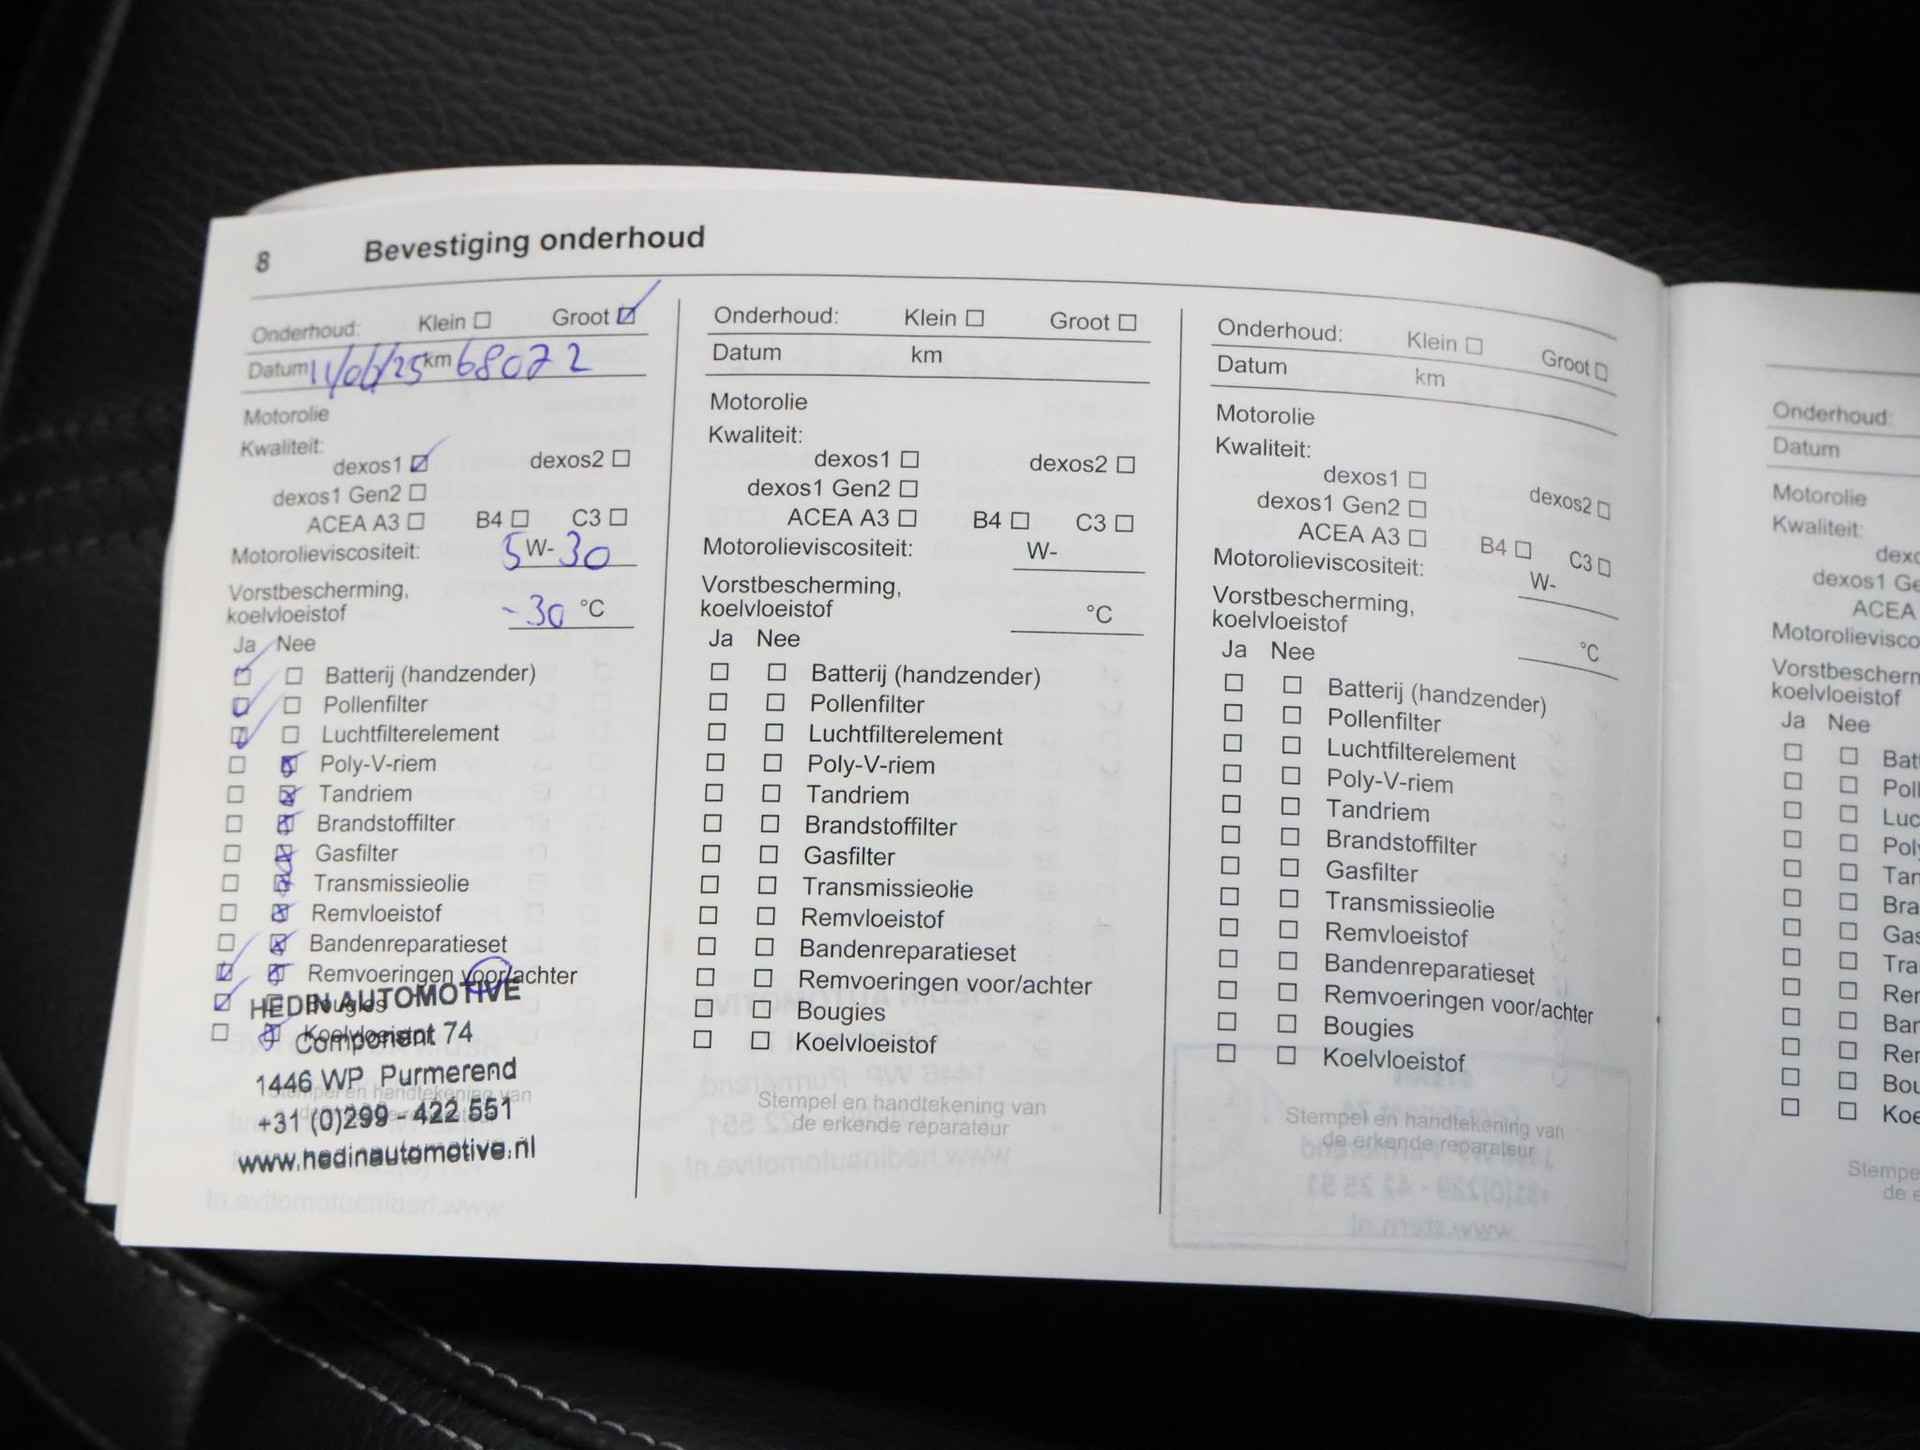 8 Bevestiging onderhoud
Onderhoud: Klein ☐ Groot ☑
Datum 11/06/25 km 68072
Motorolie
Kwaliteit:
dexos1 ☑ dexos2 ☐
dexos1 Gen2 ☐
ACEA A3 ☐ B4 ☐ C3 ☐
Motorolieviscositeit: 5 W- 30
Vorstbescherming,
koelvloeistof -30 °C
Ja Nee
☑ ☐ Batterij (handzender)
☑ ☐ Pollenfilter
☑ ☐ Luchtfilterelement
☐ ☑ Poly-V-riem
☐ ☑ Tandriem
☐ ☑ Brandstoffilter
☐ ☑ Gasfilter
☐ ☑ Transmissieolie
☐ ☑ Remvloeistof
☐ ☑ Bandenreparatieset
☑ ☑ Remvoeringen voor/achter
☑ ☐ Bougies
☐ ☑ Koelvloeistof
HEDIN AUTOMOTIVE
Component 74
1446 WP Purmerend
Stempel en handtekening van
+31 (0)299 - 422 551
www.hedinautomotive.nl
Onderhoud: Klein ☐ Groot ☐
Datum km
Motorolie
Kwaliteit:
dexos1 ☐ dexos2 ☐
dexos1 Gen2 ☐
ACEA A3 ☐ B4 ☐ C3 ☐
Motorolieviscositeit: W-
Vorstbescherming,
koelvloeistof °C
Ja Nee
☐ ☐ Batterij (handzender)
☐ ☐ Pollenfilter
☐ ☐ Luchtfilterelement
☐ ☐ Poly-V-riem
☐ ☐ Tandriem
☐ ☐ Brandstoffilter
☐ ☐ Gasfilter
☐ ☐ Transmissieolie
☐ ☐ Remvloeistof
☐ ☐ Bandenreparatieset
☐ ☐ Remvoeringen voor/achter
☐ ☐ Bougies
☐ ☐ Koelvloeistof
Stempel en handtekening van
de erkende reparateur
Onderhoud: Klein ☐ Groot ☐
Datum km
Motorolie
Kwaliteit:
dexos1 ☐ dexos2 ☐
dexos1 Gen2 ☐
ACEA A3 ☐ B4 ☐ C3 ☐
Motorolieviscositeit: W-
Vorstbescherming,
koelvloeistof °C
Ja Nee
☐ ☐ Batterij (handzender)
☐ ☐ Pollenfilter
☐ ☐ Luchtfilterelement
☐ ☐ Poly-V-riem
☐ ☐ Tandriem
☐ ☐ Brandstoffilter
☐ ☐ Gasfilter
☐ ☐ Transmissieolie
☐ ☐ Remvloeistof
☐ ☐ Bandenreparatieset
☐ ☐ Remvoeringen voor/achter
☐ ☐ Bougies
☐ ☐ Koelvloeistof
Stempel en handtekening van
de erkende reparateur
Onderhoud:
Datum
Motorolie
Kwaliteit:
dexo
dexos1 Ge
ACEA
Motorolievisco
Vorstbescherm
koelvloeistof
Ja Nee
☐ ☐ Batt
☐ ☐ Poll
☐ ☐ Luc
☐ ☐ Poly
☐ ☐ Tan
☐ ☐ Bra
☐ ☐ Gas
☐ ☐ Tra
☐ ☐ Rer
☐ ☐ Bar
☐ ☐ Rer
☐ ☐ Bou
☐ ☐ Koe
Stempe
de e